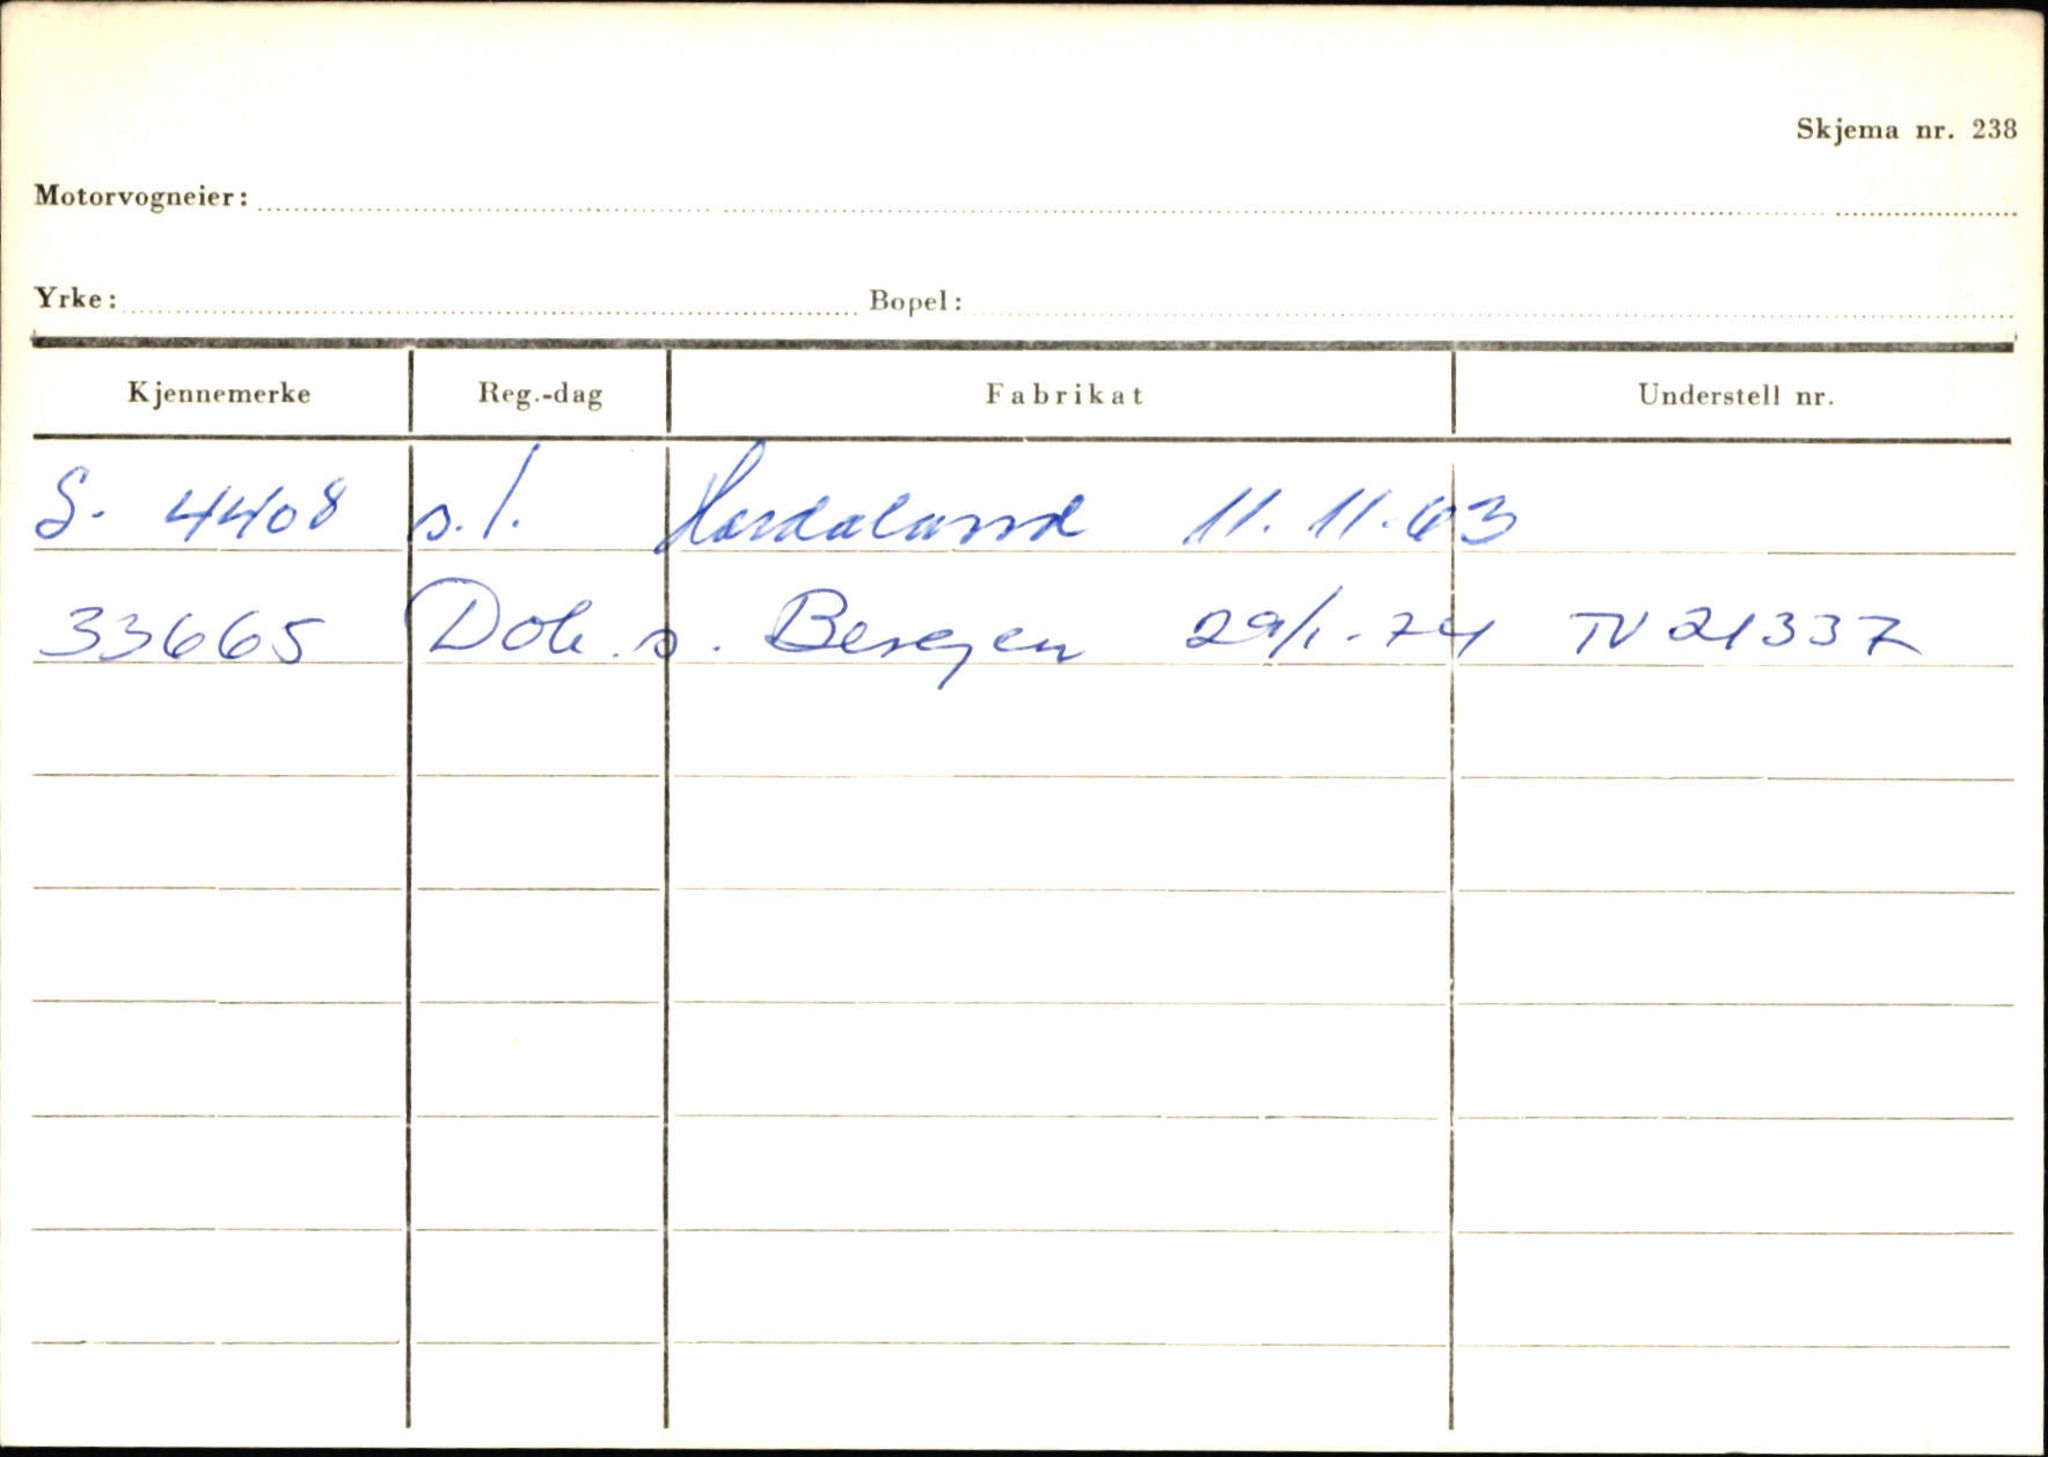 Skjema nr. 238
Motorvogneier:
Yrke: Bopel:
Kjennemerke Reg.-dag Fabrikat Understell nr.
S. 4408 s./. Hordaland 11.11.63
33665 Dok.s. Bergen 29/1-74 TV 21337